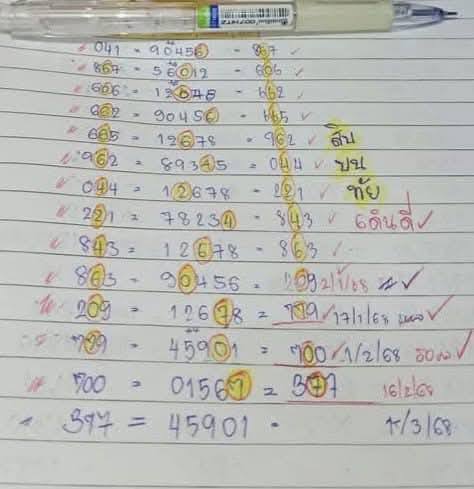 041 = 90456 - 867 ✓
867 - 56012 - 606 ✓
606 - 12045 - 662 ✓
662 = 90456 - 665 ✓
665 = 12678 - 962 ✓ สิบ
962 = 89345 = 044 ✓ บน
044 = 12678 - 221 ✓ ทัย
221 = 78234 - 843 ✓ เดินดี ✓
843 = 12678 - 863 ✓
863 = 90456 = 209 2/1/68 ✓
209 = 12678 = 779 ✓ 17/1/68 ✓
779 = 45901 = 700 ✓ 1/2/68 ✓
700 = 01567 = 377 16/2/68
377 = 45901 - 1/3/68